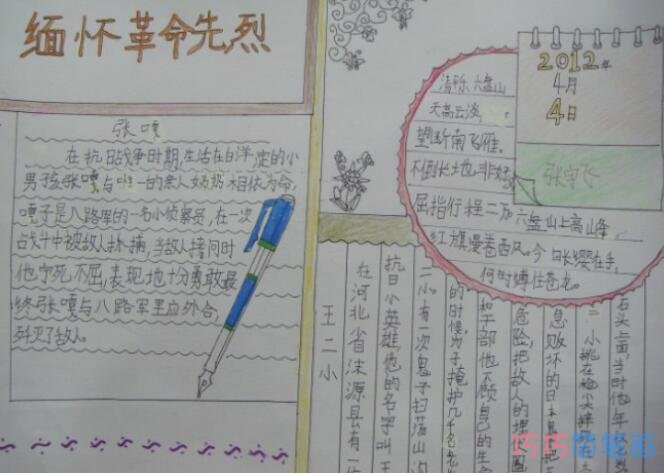 缅怀革命先烈
张嘎
在抗日战争时期,生活在白洋淀的小
男孩张嘎与唯一的亲人奶奶相依为命,
嘎子是八路军的一名小侦察员,在一次
战斗中被敌人扑捕,当敌人拷问时
他宁死不屈,表现地十分勇敢最
终张嘎与八路军里应外合,
歼灭了敌人。
2012年
4月
4日
清乐 六盘山
天高云淡,
望断南飞雁.
不到长地 非好
屈指行程二万 六盘山上高峰,
红旗漫卷西风。今 长缨在手,
何时缚住苍龙。
王二小
在河北省涞源县有一
抗日小英雄他的名字叫王
二小,有一次鬼子扫荡山沟
的时候,为了掩护几千名老
和干部他不顾自己的生
危险,把敌人的埋
息败坏的日本
石头上面,当时他年
巧巧简笔画